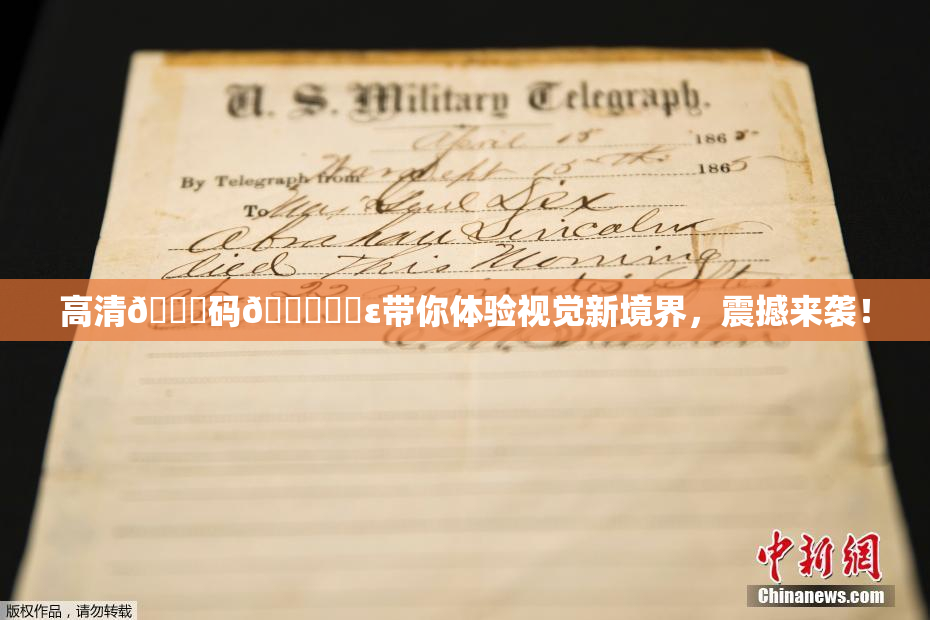 U. S. Military Telegraph.
April 15 1865
By Telegraph from War Dept 15th 1865
To Maj Genl Dix
Abraham Lincoln
died This Morning
22 minutes after
高清ð码ðε带你体验视觉新境界，震撼来袭！
中新网
Chinanews.com
版权作品，请勿转载